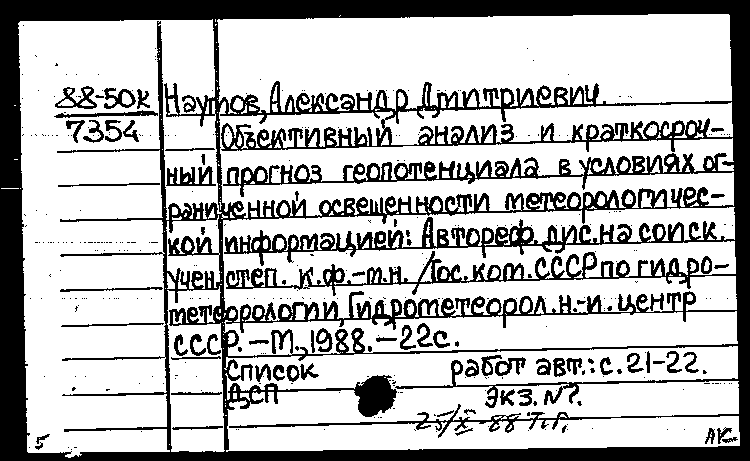 88-50к Наумов, Александр Дмитриевич.
7354 Объективный анализ и краткосроч-
ный прогноз геопотенциала в условиях ог-
раниченной освещенности метеорологичес-
кой информацией: Автореф. дис. на соиск.
учен. степ. к.ф.-м.н. / Гос. ком. СССР по гидро-
метеорологии, Гидрометеорол. н.-и. центр
СССР. – М., 1988. – 22с.
Список работ авт.: с. 21-22.
ДСП экз. №7.
25/X-88
5